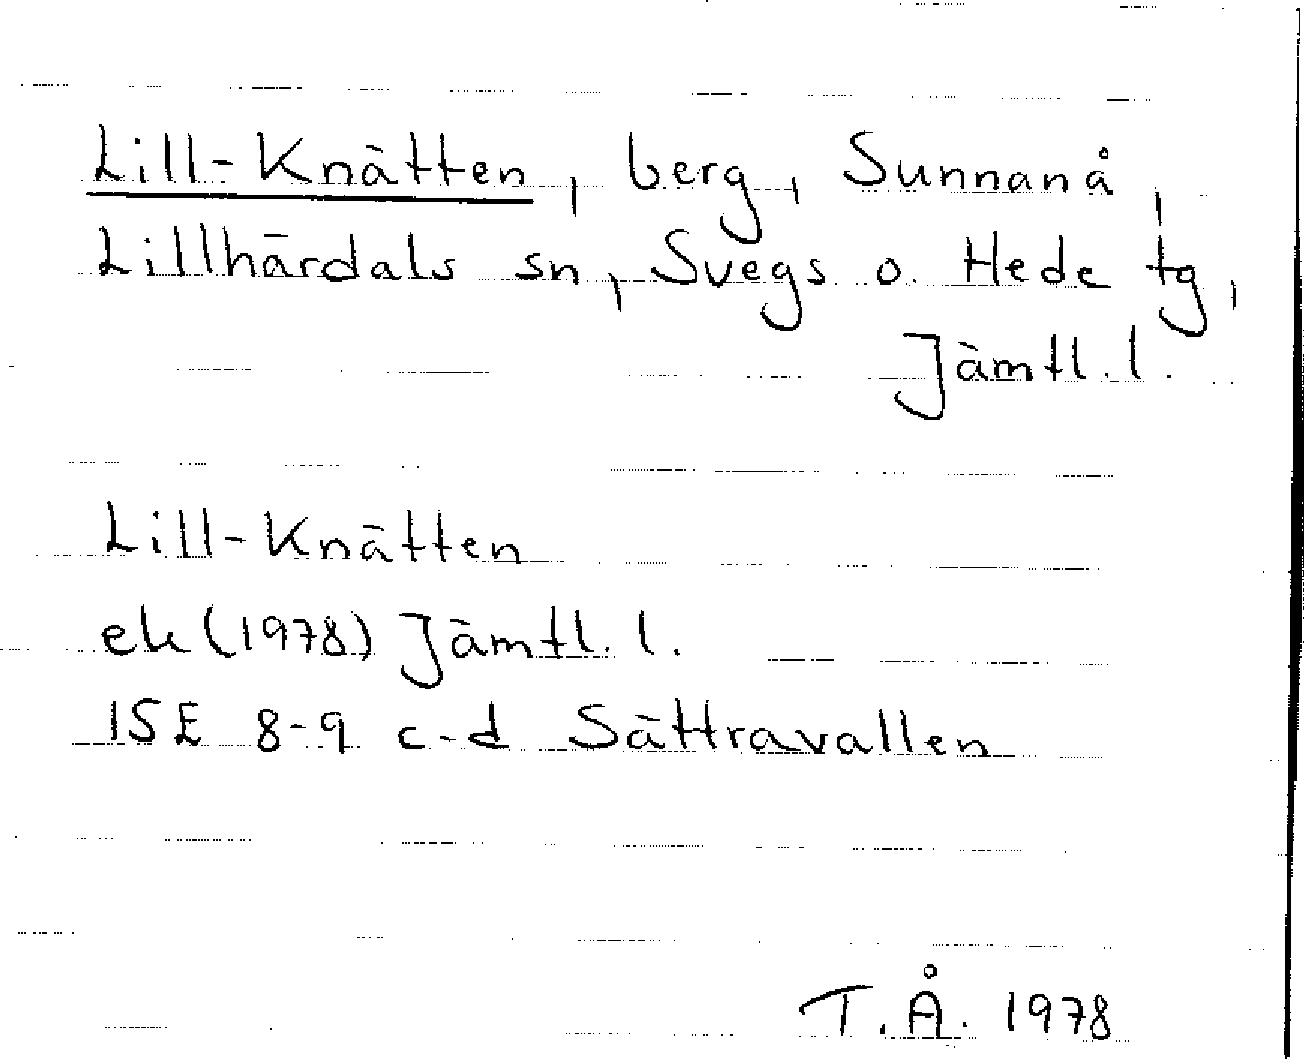 Lill-Knätten, berg, Sunnanå,
Lillhärdals sn, Svegs o. Hede tg,
Jämtl. l.
Lill-Knätten
ek (1978) Jämtl. l.
15E 8-9 c-d Sättravallen
T.Å. 1978